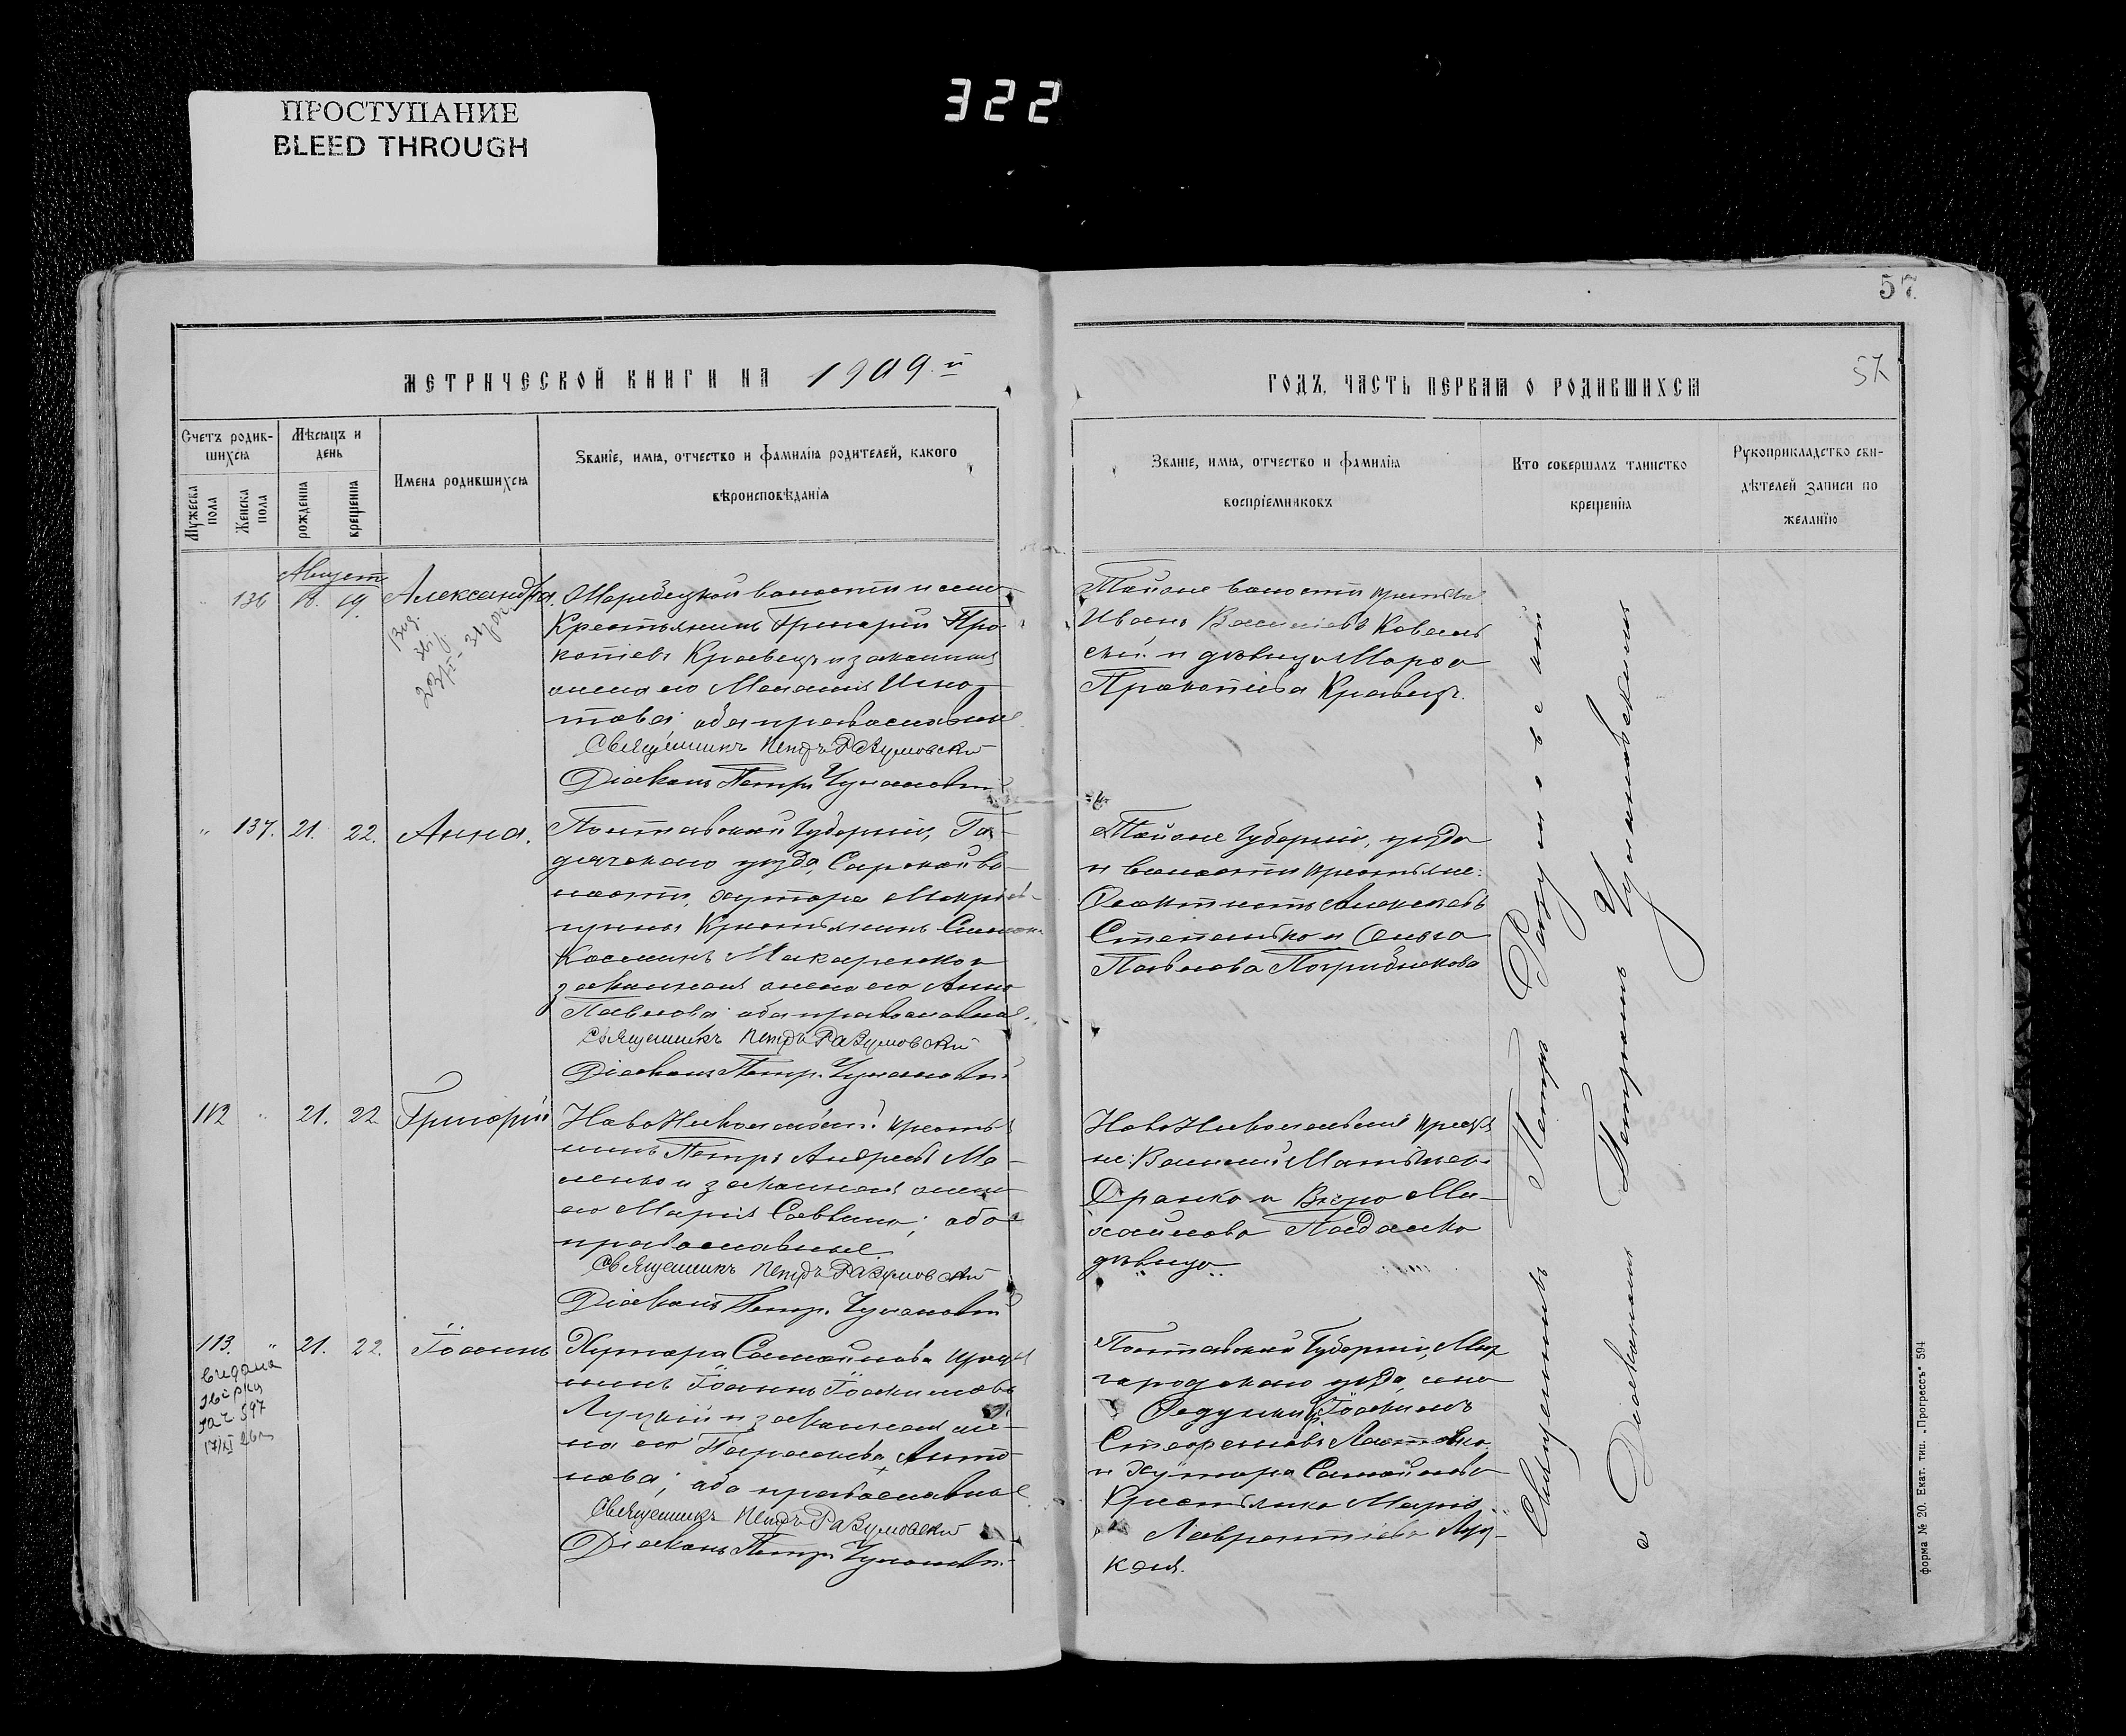 322
ПРОСТУПАНИЕ
BLEED THROUGH
57
57
МЕТРИЧЕСКОЙ КНИГИ НА 1909.й
ГОДЪ, ЧАСТЬ ПЕРВАЯ О РОДИВШИХСЯ
Счетъ родив-
шихся
Мужеска пола
Женска пола
Мѣсяцъ и
день
рожденія
крещенія
Имена родившихся
Званіе, имя, отчество и фамилія родителей, какого
вѣроисповѣданія
Званіе, имя, отчество и фамилія
воспріемниковъ
Кто совершалъ таинство
крещенія
Рукоприкладство сви-
дѣтелей записи по
желанію
Августъ
136 18. 19. Александра.
волости и села
Крестьянинъ Григорій Про-
копіевъ Кравецъ и законная
жена его Меланія Игна-
това; оба православные
Священникъ Петръ Разумовскій
Діаконъ Петръ
Тойже волости
Иванъ Василіевъ Коваль
скій и дѣвица Марѳа
Прокопіева Кравецъ.
" 137. 21. 22. Анна.
Полтавской Губерніи, Га-
дячскаго уѣзда, Сарской во-
лости, хутора
Крестьянинъ Симеонъ
Косминъ Макаренко и
законная жена его Анна
Павлова оба православные.
Священникъ Петръ Разумовскій
Діаконъ Петръ
Тойже Губерніи, уѣзда
и волости крестьяне:
Ѳеоктистъ Алексѣевъ
Степанько и Ольга
Павлова
112 " 21. 22 Григорій
НовоНиколаевскій крестья
нинъ Петръ Андреевъ Ма-
ленко и законная жена
его Марія Саввина; оба
православные.
Священникъ Петръ Разумовскій
Діаконъ Петръ
НовоНиколаевскіе
не: Василій Матѳіевъ
Дранко и Вѣра Ми-
хайлова Падалка
дѣвица
113. " 21. 22. Іоаннъ
видана
597
17/XI 26
Хутора Самойлова
нинъ Іоаннъ Іоакимовъ
Луцкій и законная же-
на его Параскева Анто-
нова; оба православные
Священникъ Петръ Разумовскій
Діаконъ Петръ
Полтавской Губерніи, Мир
городскаго уѣзда, села
Ѳедунки Іоакимъ
Стефановъ
и хутора Самойлова
Крестьянка Марія
Лаврентіева Луц-
кая.
Священникъ Петръ Разумовскій
съ Діакономъ Петромъ
форма № 20. Екат. тип. „Прогрессъ“ 594